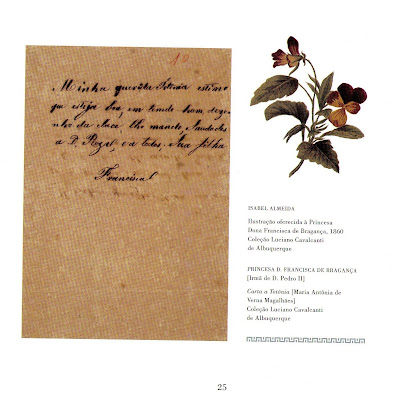 10
Minha querida Totonia estimo
que esteja boa, eu tendo bom deze
da lhe mando, Saudades
a D. Roza, e a todos, Sua filha
Francisca
ISABEL ALMEIDA
Ilustração oferecida à Princesa
Dona Francisca de Bragança, 1860
Coleção Luciano Cavalcanti
de Albuquerque
PRINCESA D. FRANCISCA DE BRAGANÇA
[Irmã de D. Pedro II]
Carta a Totônia [Maria Antônia de
Verna Magalhães]
Coleção Luciano Cavalcanti
de Albuquerque
25